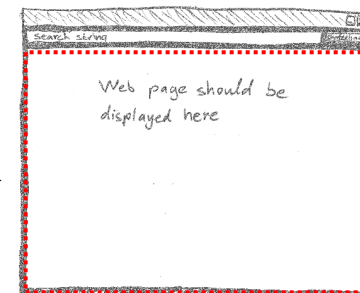 search string
Web page should be
displayed here